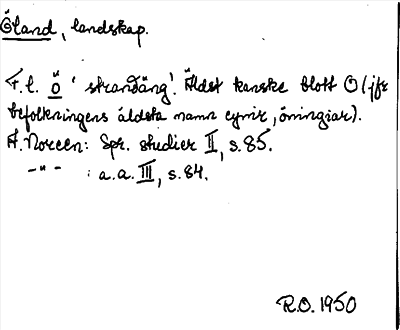 Öland, landskap.
F.l. ö 'strandäng'. Äldst kanske blott Ö (jfr
befolkningens äldsta namn eynir, öningiar).
A. Noreen: Spr. studier II, s. 85.
-"- : a.a. III, s. 84.
R.O. 1950